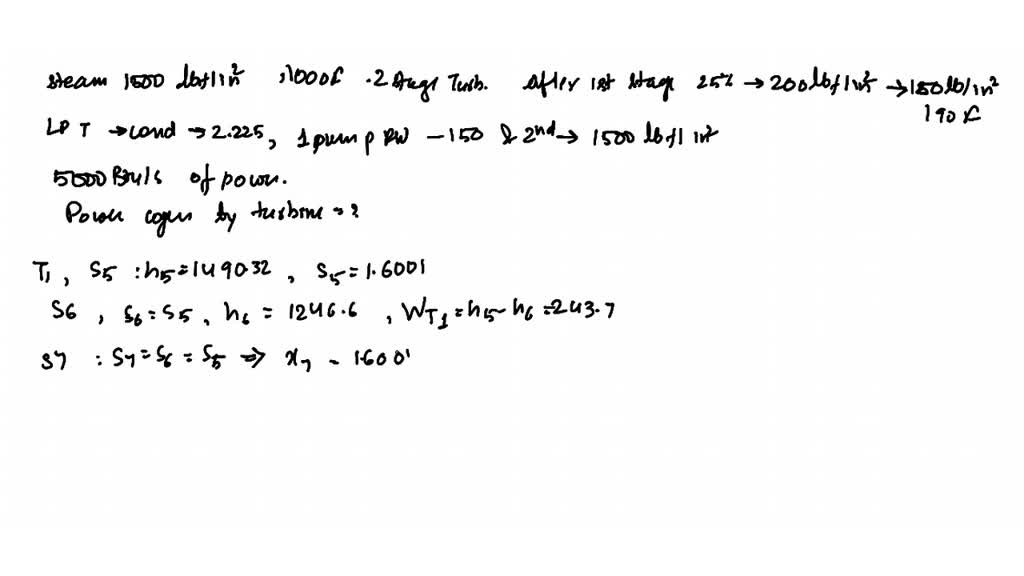 steam 1500 lbf/in² , 1000f . 2 stage Turb. After 1st stage 25% → 200 lbf/in² → 150 lb/in²
190 f
LP T → cond → 2.225, 1 pump PW - 150 & 2nd → 1500 lbf/in²
5000 Btu/s of power.
Power cogen by turbine = ?
T₁, S5 : h₅ = 1490.32 , S₅ = 1.6001
S6 , S₆ = S5 , h₆ = 1246.6 , WT1 = h₅ - h₆ = 243.7
S7 : S₇ = S₆ = S₅ ⇒ x₇ - 1.600'